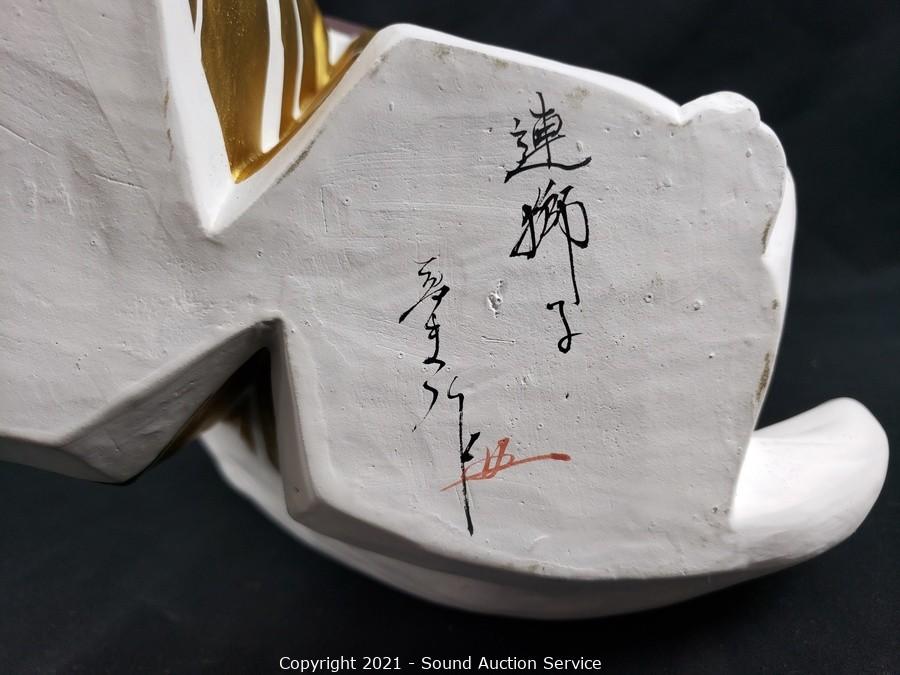 連獅子
作
Copyright 2021 - Sound Auction Service